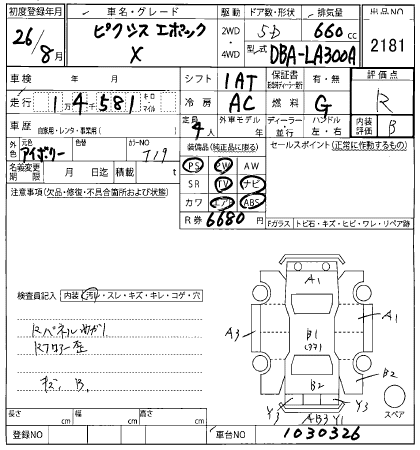 初度登録年月 車名・グレード 駆動 ドア数・形状 排気量 出品NO
26/8月 ピクシス エポック X 2WD 4WD 5D 660cc 2181
型式 DBA-LA300A
車検 年 月 シフト 1AT 保証書 有・無 評価点
走行 1万4千581 キロ・マイル 冷房 AC 燃料 G R
車歴 自家用・レンタ・事業用( ) 定員 4人 外車モデル 年 ディーラー 並行 ハンドル 左・右 内装評価 B
外色 元色 アイボリー 色替 カラーNO T19 装備品(純正品に限る) セールスポイント(正常に作動するもの)
名義変更期限 月 日迄 積載 t
PS PW AW
SR TV ナビ
カワ エアB ABS
R券 6680円
注意事項(欠品・修復・不具合箇所および状態)
Fガラス トビ石・キズ・ヒビ・ワレ・リペア跡
検査員記入 内装・汚れ・スレ・キズ・キレ・コゲ・穴
Rパネルめがり
Rフロアー歪
キズ、B、
A1
A3
A1
B1
B2
B2
Y3
Y3
AB3 Y1
スペア
長さ cm 幅 cm 高さ cm
登録NO 車台NO 1030326